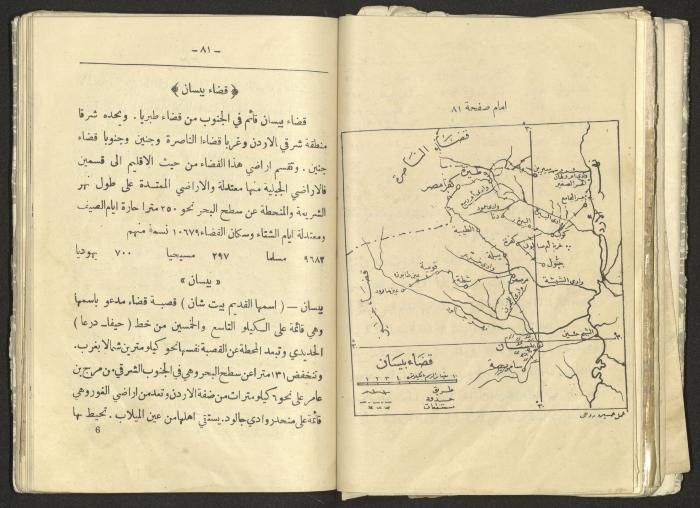 - ٨١ -
﴿ قضاء بيسان ﴾
قضاء بيسان قائم في الجنوب من قضاء طبريا . ويحده شرقا
منطقة شرقي الاردن وغربا قضاءا الناصرة وجنين وجنوبا قضاء
جنين . وتقسم اراضي هذا القضاء من حيث الاقليم الى قسمين
فالاراضي الجبلية منها معتدلة والاراضي الممتدة على طول نهر
الشريعة والمنحطة عن سطح البحر نحو ٢٥٠ مترا حارة ايام الصيف
ومعتدلة ايام الشتاء وسكان القضاء ١٠٦٧٩ نسمة منهم
٩٦٨٢ مسلما ٢٩٧ مسيحيا ٧٠٠ يهوديا
« بيسان »
بيسان — ( اسمها القديم بيت شان ) قصبة قضاء مدعو باسمها
وهي قائمة على الكيلو التاسع والخمسين من خط ( حيفا - درعا )
الحديدي وتبعد المحطة عن القصبة نفسها نحو كيلو مترين شمالا بغرب.
وتنخفض ١٣١ مترا عن سطح البحر وهي في الجنوب الشرقي من مرج بن
عامر على نحو ٦ كيلو مترات من ضفة الاردن وتعد من اراضي الغور وهي
قائمة على منحدر وادي جالود. يستقي اهلها من عين الميلاب . تحيط بها
6
امام صفحة ٨١
قضاء الناصرة
كفر مصر
الطيبة
دنا
كفرة
يبلة
قومية
شطة
وادي العشة
جسر المجامع
الشيخ حسين
بيسان
قضاء بيسان
١ ٢ ٣ ٤
طريق
حدود
مستنقعات